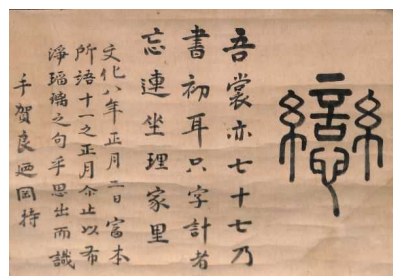 戀
吾裳亦七十七乃
書初耳只字計者
忘連坐理家里
文化八年正月二日富本
所語十一之正月介止以布
淨瑠璃之句乎思出而識
手賀良廼岡持